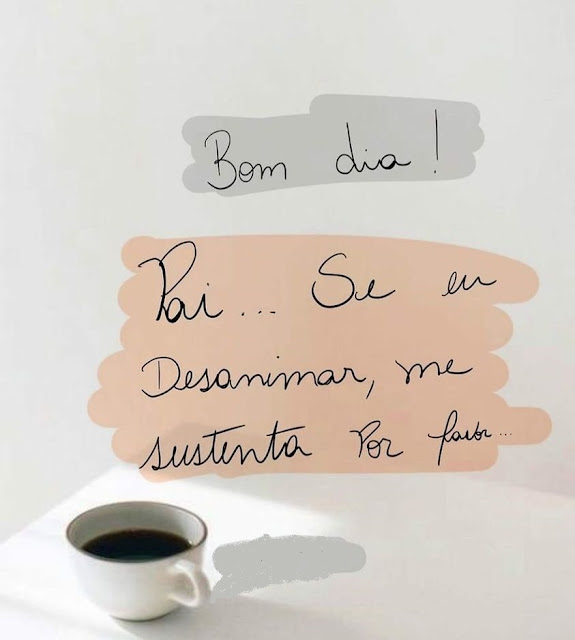 Bom dia!
Pai... Se eu
Desanimar, me
sustenta Por favor...